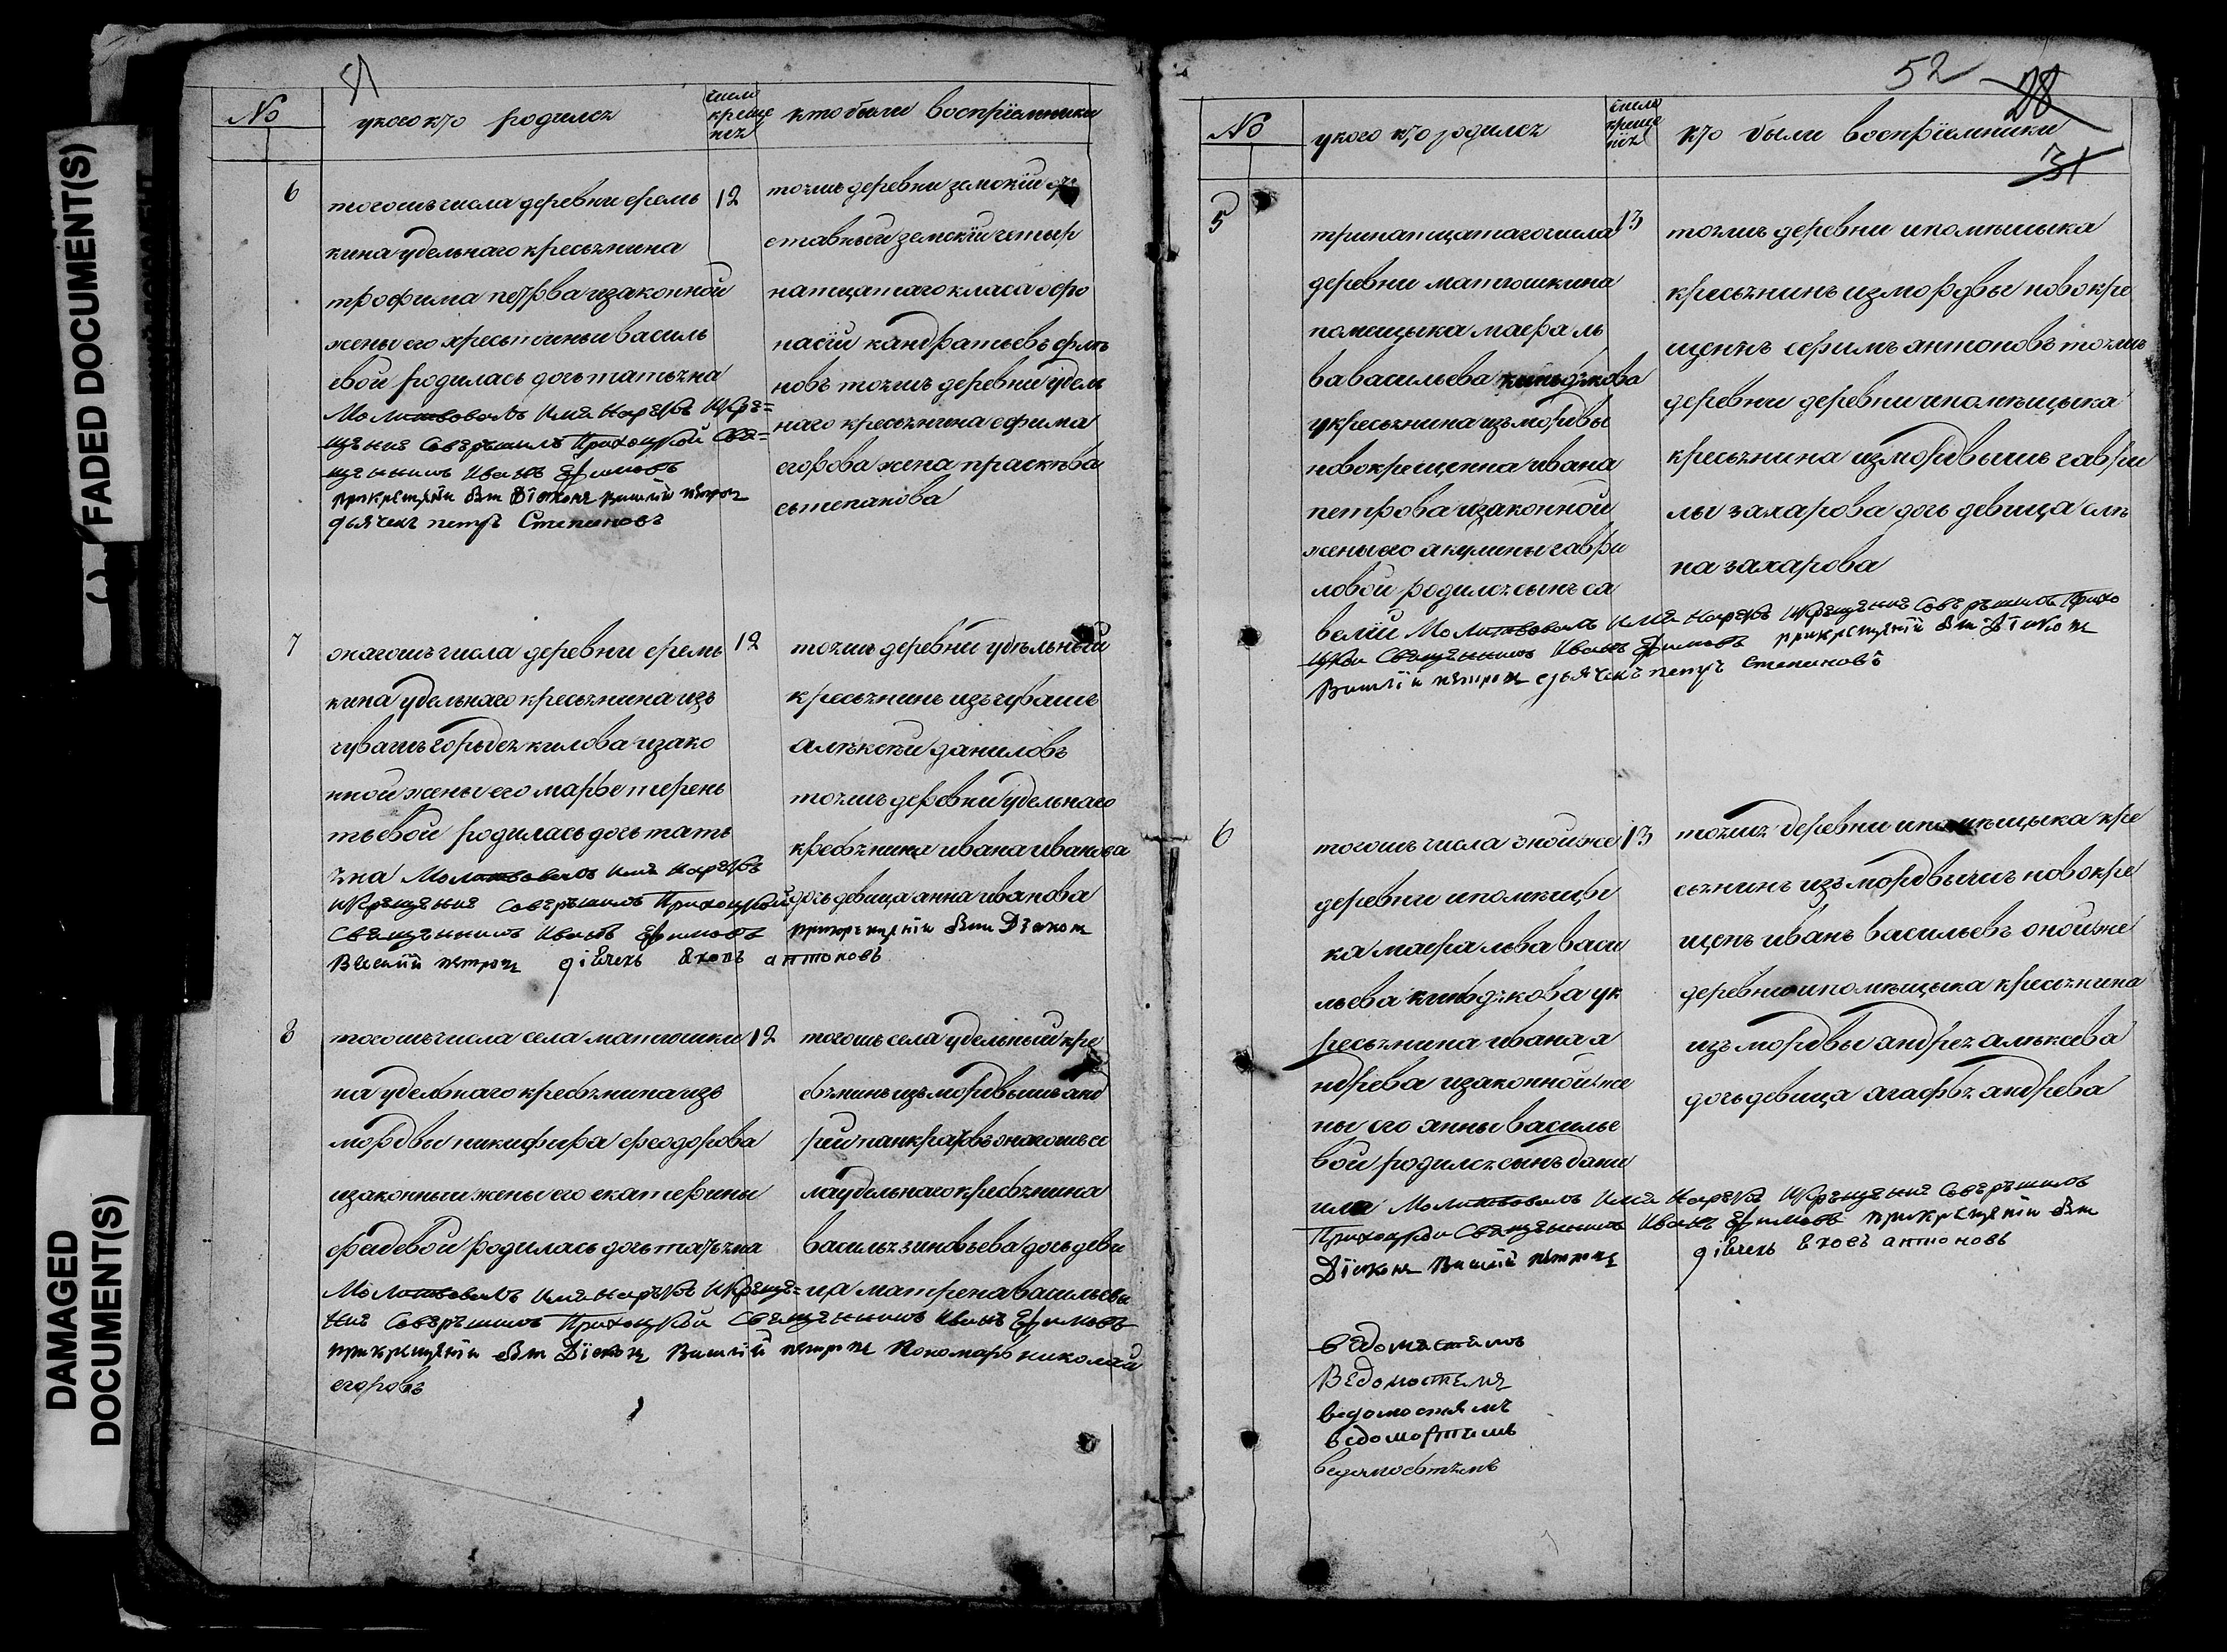 FADED DOCUMENT(S)
DAMAGED
DOCUMENT(S)
№
у кого кто родился
число
креще
нiя
кто были восприемники
6
тогошъ числа деревни ерем
кина удельнаго кресьянина
трофима петрова изаконной
жены его хрестиньи василь
евой родилась дочь татьяна
Молитвовалъ имя нарекъ икре=
щение совершилъ Приходской Свя=
щенникъ Иванъ Ефимовъ
прикрещении былъ Дiаконъ василiй петровъ
дьячекъ петръ Степановъ
12
тояшъ деревни
ставный земский четыр
натцатаго класа афо
насiй кандратьевъ
новъ тояшъ деревни удель
наго кресьянина ефима
егорова жена прасковя
степанова
7
онагошъ числа деревни ерем
кина удельнаго кресьянина изъ
чувашъ изако
нной жены его марье терень
тьевой родилась дочь тать
яна Молитвовалъ имя нарекъ
икрещение совершилъ Приходской
Священникъ Иванъ Ефимовъ
Василiй петровъ дiячекъ антоновъ
12
тояшъ деревни удельный
кресьянинъ изъ чувашъ
алексей даниловъ
тояшъ деревни удельнаго
кресьянина ивана иванова
дочь девица анна иванова
прикрещении былъ Дiаконъ
8
тогошъ числа села матюшки
на удельнаго кресьянина изъ
мордвы никифира феодорова
изаконныи жены его екатерины
фадевой родилась дочь татьяна
Молитвовалъ имя нарекъ икреще=
ние совершилъ Приходской Священникъ Иванъ Ефимовъ
прикрещении былъ Дiаконъ Василiй петровъ Пономарь николай
егоровъ
12
тогошъ села удельный кре
сьянинъ изъ мордвышъ анд
рей панкратовъ онагошъ се
ла удельнаго кресьянина
василья зиновьева дочь деви
ца матрена васильева
52
28
31
№
у кого кто родился
число
креще
нiя
кто были восприемники
5
тринатцатаго числа
деревни матюшкина
помещыка маера ль
ва васильева
у кресьянина изъ мордвы
новокрещенна ивана
петрова изаконной
жены его акулины гаври
ловой родился сынъ са
велiй Молитвовалъ имя нарекъ икрещение совершилъ Прихо
цкой Священникъ Иванъ Ефимовъ прикрещении былъ Дiаконъ
Василiй петровъ дьячекъ петръ степановъ
13
тояшъ деревни ипомещыка
кресьянинъ измордвы новокре
щенъ ефимъ антоновъ тояшъ
деревни деревни ипомещыка
кресьянина измордвышъ гаври
лы захарова дочь девица еле
на захарова
6
тогошъ числа оной же
деревни ипомещы
ка маера льва васи
льева у к
ресьянина ивана а
ндрева изаконной же
ны его анны василье
вой родился сынъ дани
ила Молитвовалъ имя нарекъ икрещение совершилъ
Приходской Священникъ Иванъ Ефимовъ прикрещении былъ
Дiаконъ Василiй петровъ дiячекъ антоновъ
13
тояшъ деревни ипомещыка кре
сьянинъ изъ мордвычшъ новокре
щенъ иванъ васильевъ оной же
деревни ипомещыка кресьянина
изъ мордвы андрея алексева
дочь девица агафья андрева